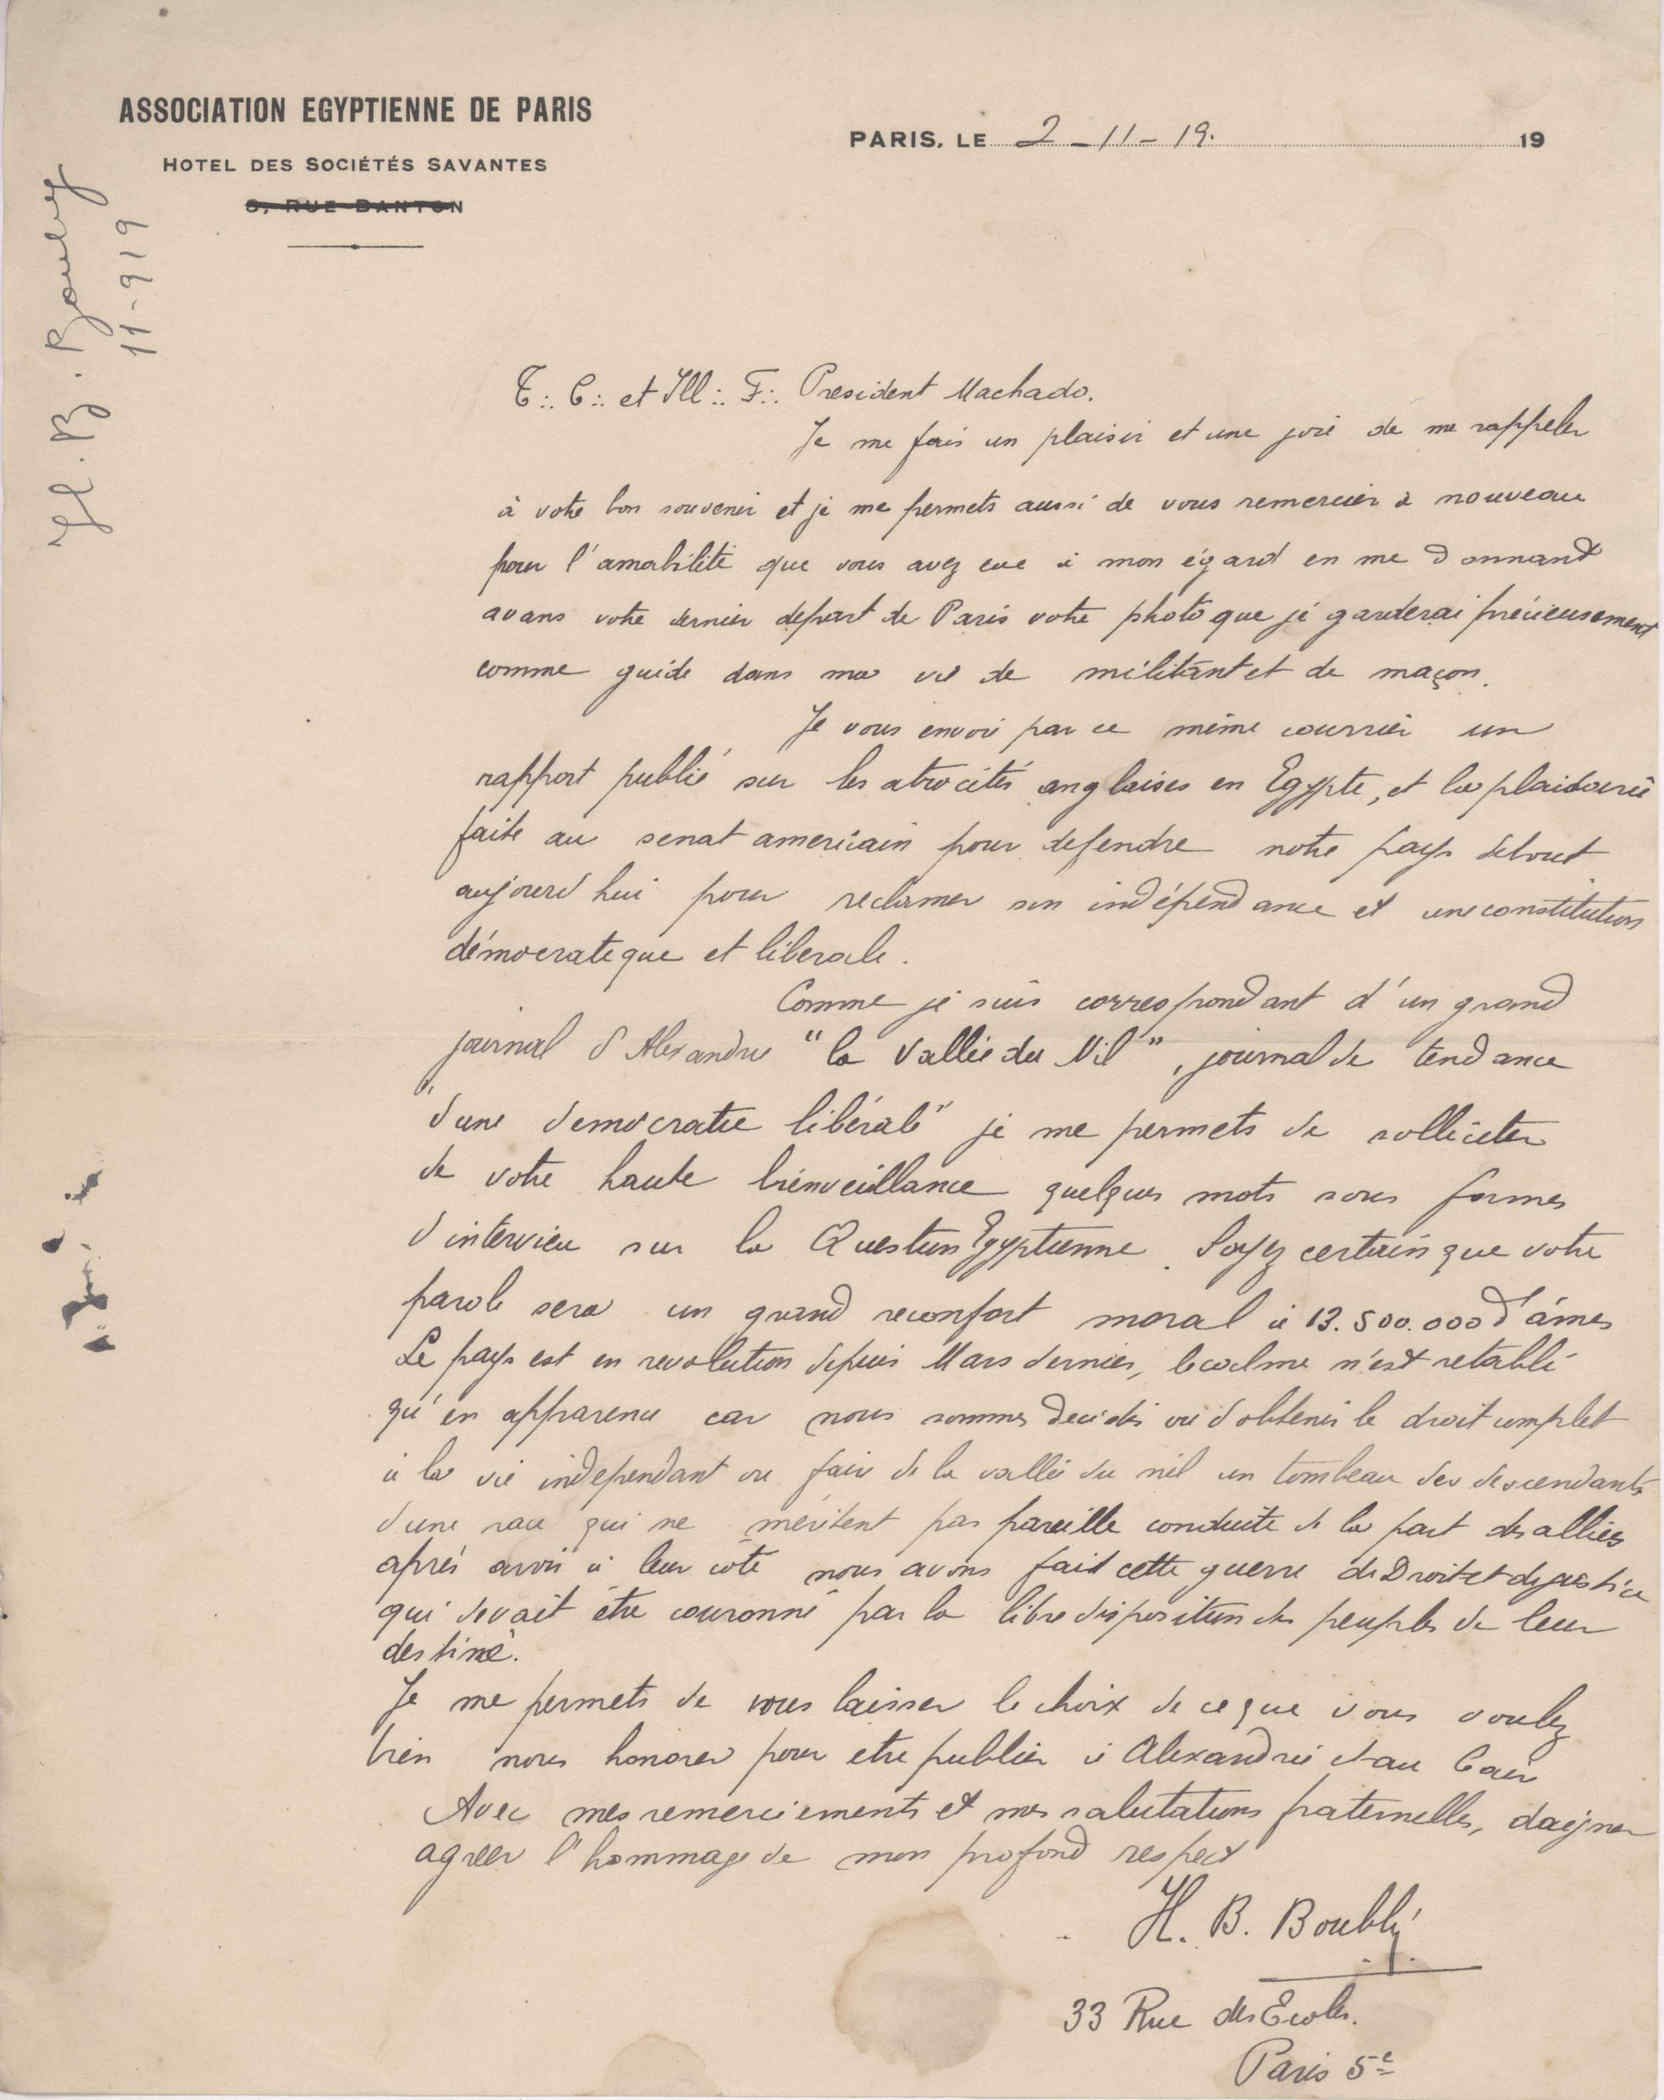 ASSOCIATION EGYPTIENNE DE PARIS
HOTEL DES SOCIÉTÉS SAVANTES
8, RUE DANTON
PARIS, LE 2-11-19. 19
H. B. Boubly
11-919
T∴ C∴ et Ill∴ F∴ President Machado.
Je me fais un plaisir et une joie de me rappeler
à votre bon souvenir et je me permets aussi de vous remercier à nouveau
pour l'amabilité que vous avez eue à mon égard en me donnant
avans votre dernier depart de Paris votre photo que je garderai précieusement
comme guide dans ma vie de militant et de maçon.
Je vous envoie par ce même courrier un
rapport publié sur les atrocités anglaises en Egypte, et la plaidoerie
faite au senat americain pour defendre notre pays debout
aujourd'hui pour reclamer son indépendance et une constitution
démocratique et liberale.
Comme je suis correspondant d'un grand
journal d'Alexandrie "la Vallée du Nil", journal de tendance
"d'une democratie libérale" je me permets de solliciter
de votre haute bienveillance quelques mots sous formes
d'interview sur la Question Egyptienne. Soyez certain que votre
parole sera un grand reconfort moral à 13.500.000 d'âmes
Le pays est en revolution depuis Mars dernier, le calme n'est retabli
qu'en apparence car nous sommes decidés ou d'obtenir le droit complet
à la vie independant ou faire de la vallée du nil un tombeau des descendants
d'une race qui ne méritent pas pareille conduite de la part des alliés
après avoir à leur côté nous avons fait cette guerre de Droit et de justice
qui devait être couronné par la libre disposition des peuples de leur
destiné.
Je me permets de vous laisser le choix de ce que vous voulez
bien nous honorer pour etre publier à Alexandrie et au Caire
Avec mes remerciements et mes salutations fraternelles, daigner
agreer l'hommage de mon profond respect
H. B. Boubli
33 Rue des Ecoles.
Paris 5e